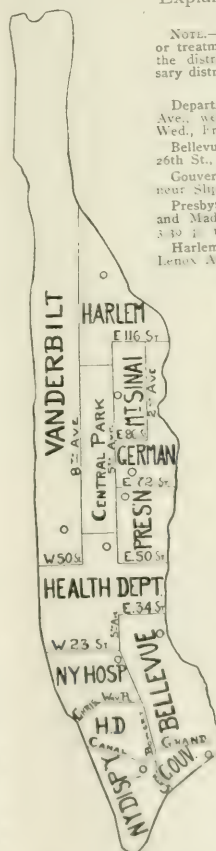 Explan
NOTE.—
or treatm
the distri
sary distr
Depart
Ave., we
Wed., Fr
Bellevu
26th St.,
Gouver
neur Slip
Presby
and Mad
Harlem
Lenox A
HARLEM
E 116 ST
VANDERBILT
8TH AVE
CENTRAL PARK
5TH AVE
MT SINAI
2ND AVE
E 86 ST
GERMAN
E 72 ST.
PRES'N
W 50 ST
E 50 ST
HEALTH DEPT.
E. 34 ST
W 23 ST
5TH AV
NY HOSP
BELLEVUE
H.D
CANAL
GRAND
NY DISPY
GOUV.